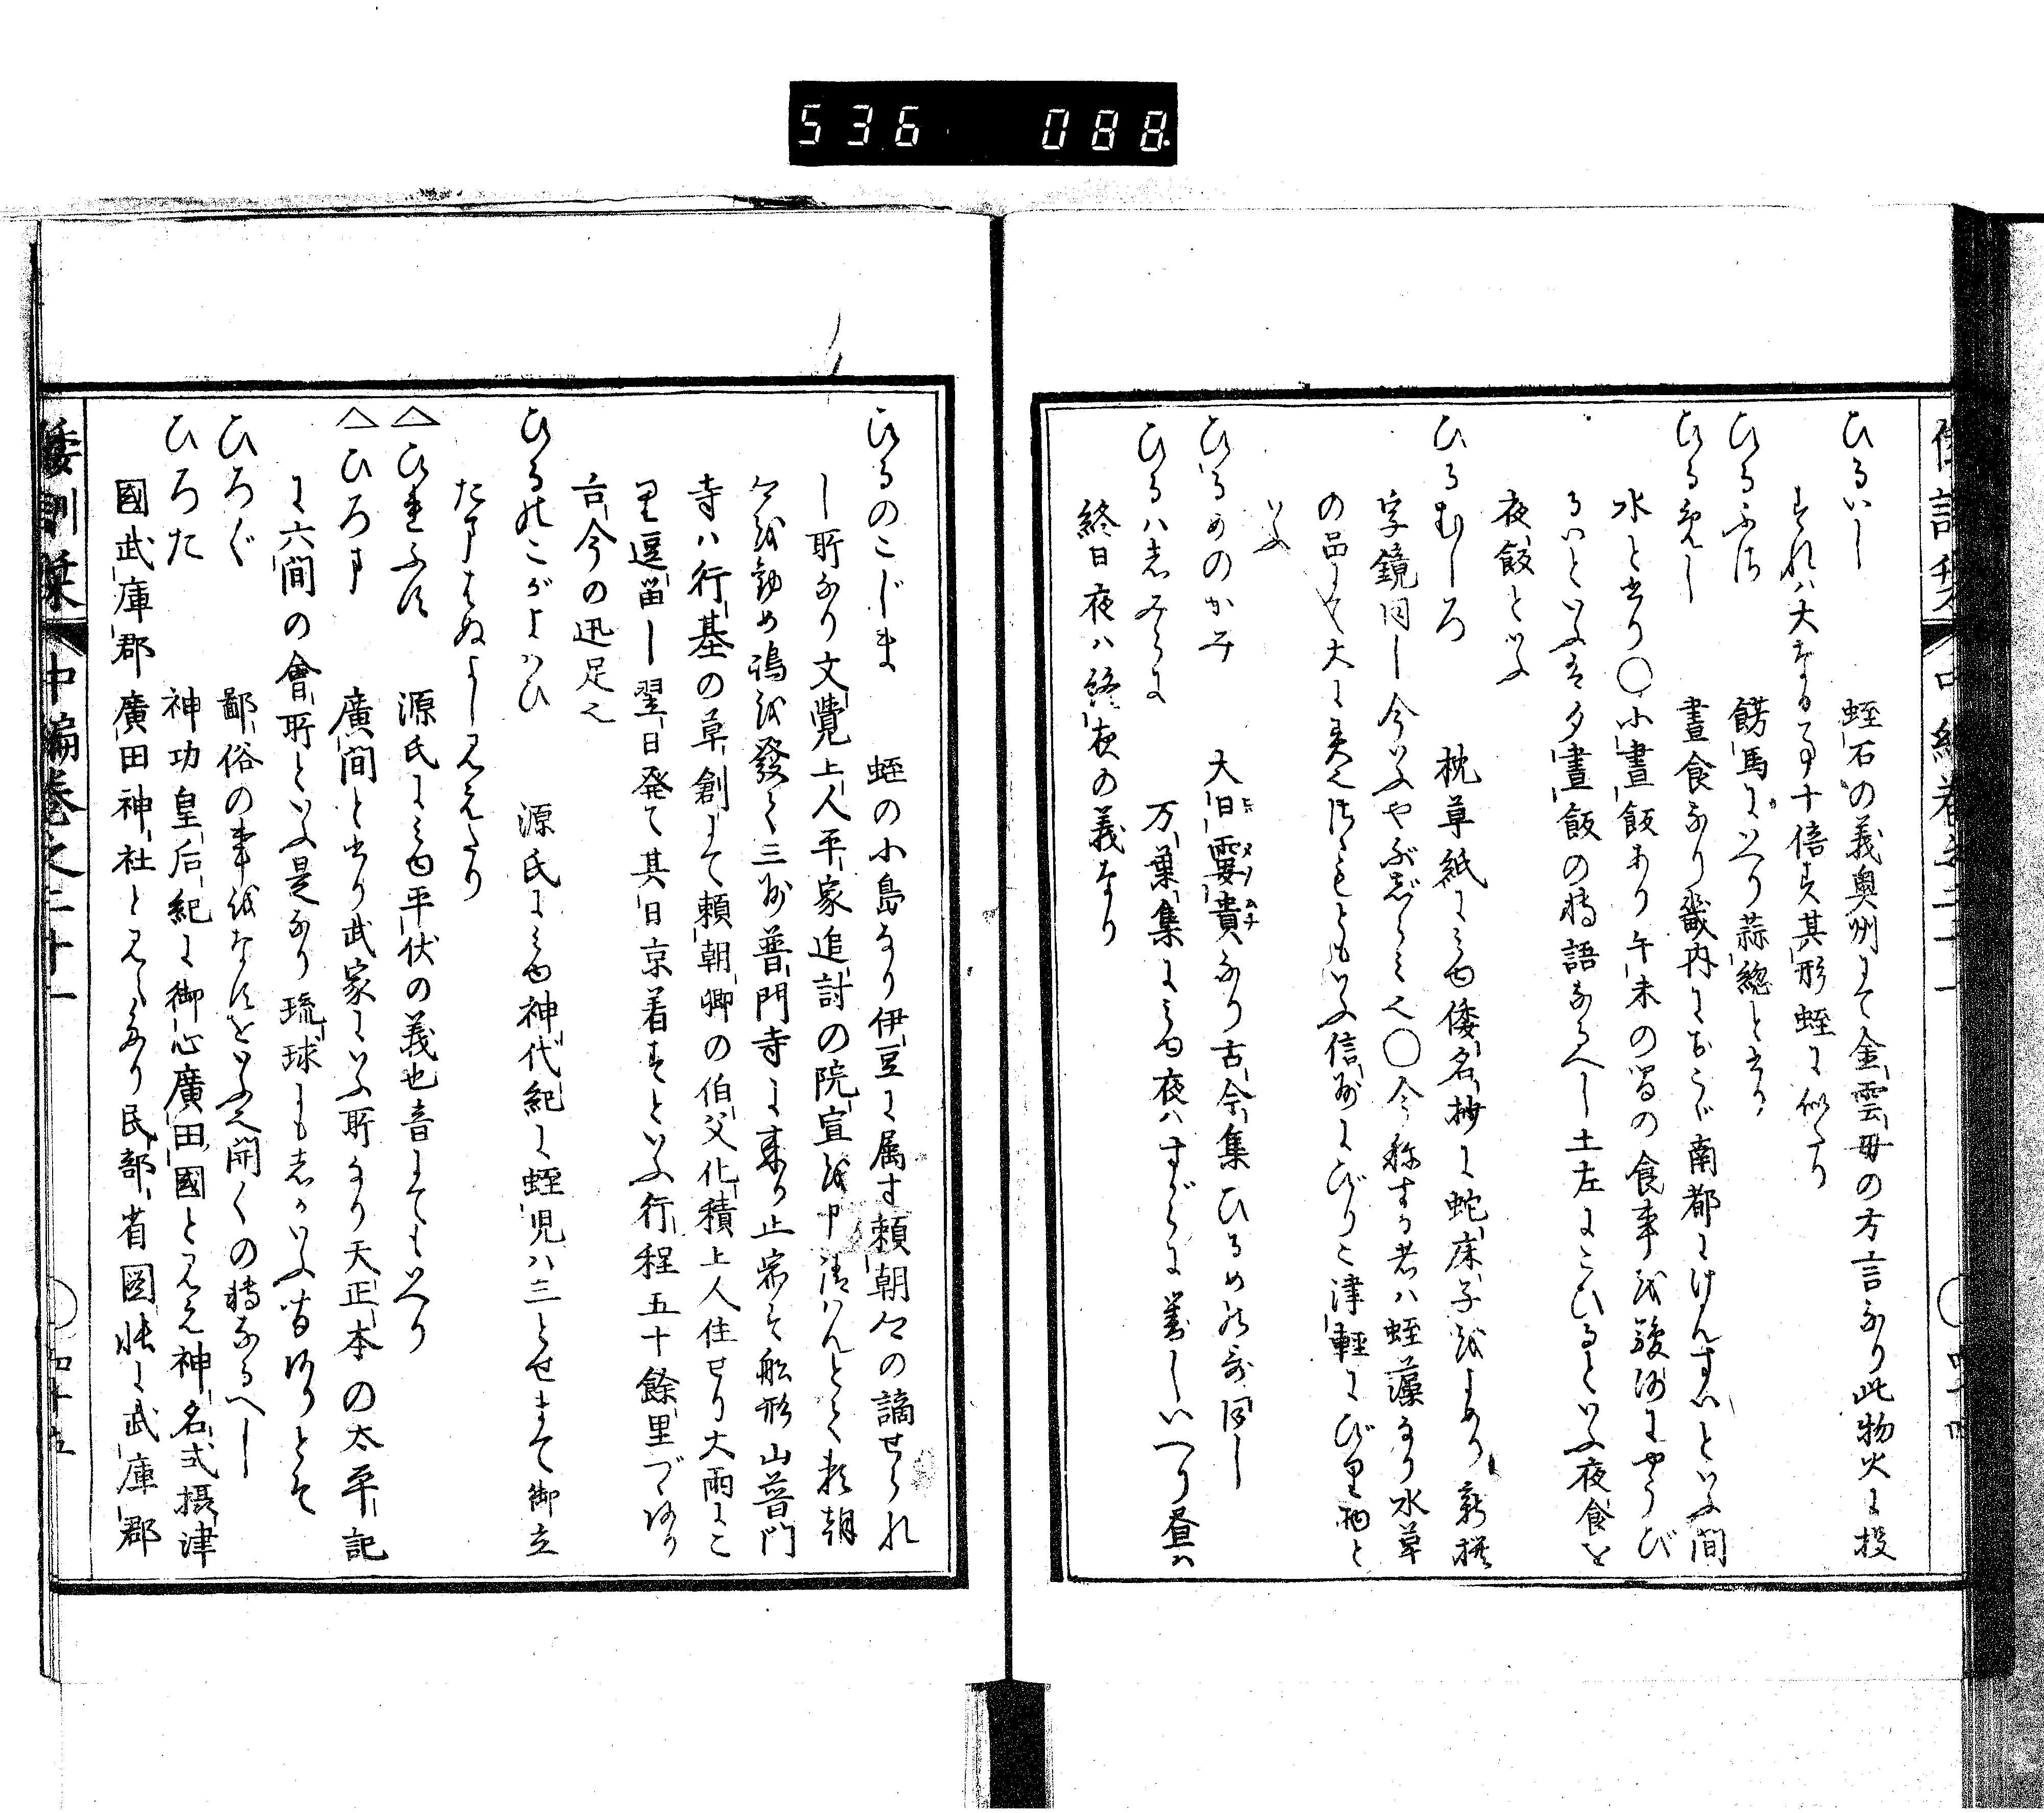 536 088
ひるいし 蛭石の義奥州にて金雲母の方言なり此物火に投
すれハ大なる事十倍す其形蛭に似たり
ひるふさ 餝馬にいへり蒜總と書り
ひるめし 晝食なり畿内におゐて南都にけんすいといふ間
水と書り〇小晝飯あり午未の間の食事を駿河にやうび
るいといふは夕晝飯の轉語なるへし土左にこひるといふ夜食を
夜飯といふ
ひるむしろ 枕草紙に見ゆ倭名抄に蛇床子をよめり新撰
字鏡同し今いふやぶじらみ也〇今称する者ハ蛭藻なり水草
の品にて大に美也ひるもともいふ信州にびりこ津軽にびり物と
いふ
ひるめのかみ 大日孁貴なり古今集ひるめの哥同し
ひるハしみらに 万葉集に見ゆ夜ハすがらに對しいへり昼は
終日夜ハ終夜の義なり
ひるのこじま 蛭の小島なり伊豆に属す頼朝公の謫せられ
し所なり文覺上人平家追討の院宣を申請ハんとて頼朝
公を勧め潟を發て三州普門寺に来り止宿す船形山普門
寺ハ行基の草創にて頼朝卿の伯父化積上人住せり大雨にて
里逗留し翌日発て其日京着すといふ行程五十餘里づゝあり
古今の迅足也
ひるのこがよハひ 源氏に見ゆ神代紀に蛭児ハ三とせまて御立
たまはぬよし見えたり
△ひれふす 源氏に見ゆ平伏の義也音にてもいへり
△ひろま 廣間と書り武家にいふ所なり天正本の太平記
に六間の會所といふ是なり琉球にもしかいふ間ありとそ
ひろぐ 鄙俗の事をなすをいふ也開くの轉なるへし
ひろた 神功皇后紀に御心廣田國と見え神名式摂津
國武庫郡廣田神社と見えたり民部省圖帳に武庫郡
倭訓栞 中編巻之二十一 四十五